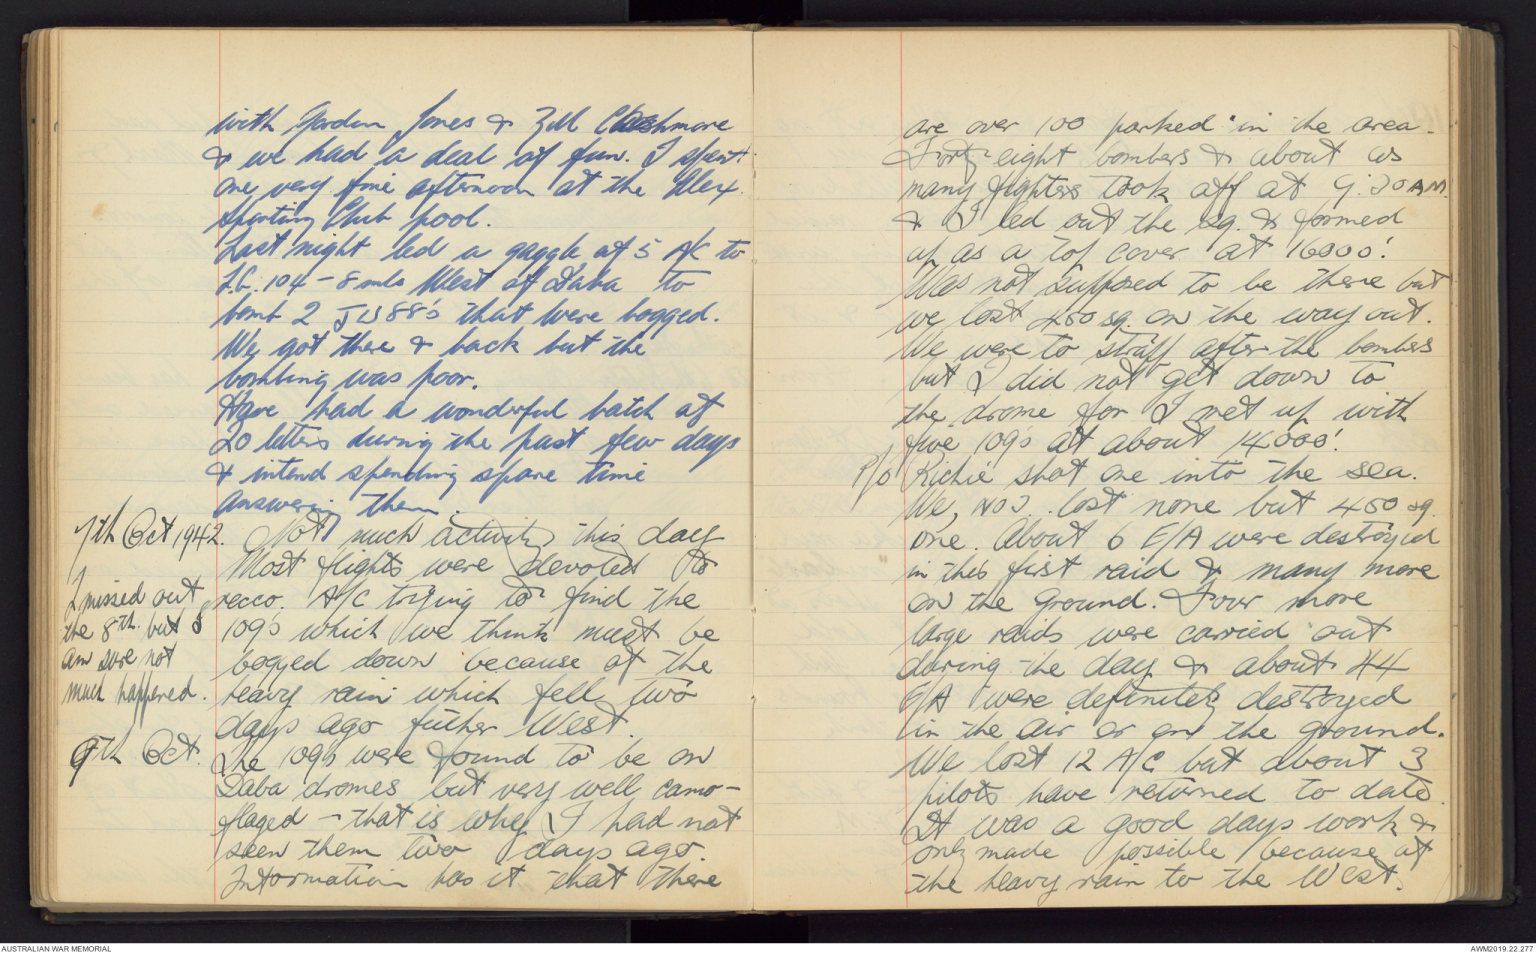 with Gordon Jones & Zill Cashmore
& we had a deal of fun. I spent
one very fine afternoon at the Alex.
Sporting Club pool.
Last night led a gaggle of 5 A/C to
L.G. 104 - 8 mls West of Daba to
bomb 2 JU 88's that were bogged.
We got there & back but the
bombing was poor.
Have had a wonderful batch of
20 letters during the past few days
& intend spending spare time
answering them.
7th Oct 1942. Not much activity this day
Most flights were devoted to
recco. A/C trying to find the
109's which we think must be
bogged down because of the
heavy rain which fell two
days ago futher West.
I missed out
the 8th. but I
am sure not
much happened.
9th Oct. The 109's were found to be on
Daba dromes but very well camo-
flaged - that is why I had not
seen them two days ago.
Information has it that there
are over 100 parked in the area.
Forty eight bombers & about as
many fighters took off at 9.30 AM.
& I led out the sq. & formed
up as a top cover at 16000'.
Was not supposed to be there but
we lost 450 sq. on the way out.
We were to straff after the bombers
but I did not get down to
the drome for I met up with
five 109's at about 14000'.
P/O Richie shot one into the sea.
We, NO 3. lost none but 450 sq.
one. About 6 E/A were destroyed
in this first raid & many more
on the ground. Four more
large raids were carried out
during the day & about 44
E/A were definitely destroyed
in the air or on the ground.
We lost 12 A/C but about 3
pilots have returned to date.
It was a good days work &
only made possible because of
the heavy rain to the West.
AUSTRALIAN WAR MEMORIAL
AWM2019.22.277